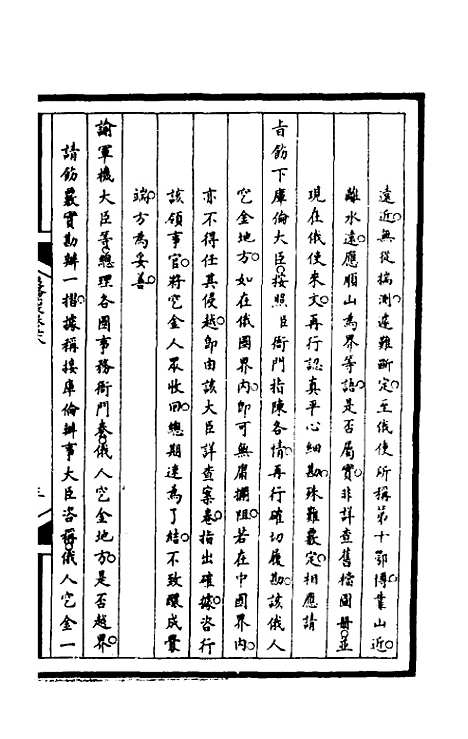 遠近無從揣測遽難斷定至俄使所稱第十鄂博業山近
離水遠應順山為界等語是否屬實非詳查舊檔圖冊並
現在俄使來文再行認真平心細勘殊難覈定相應請
旨飭下庫倫大臣按照臣衙門指陳各情再行確切履勘該俄人
穵金地方如在俄國界內即可無庸攔阻若在中國界內
亦不得任其侵越即由該大臣詳查案卷指出確據咨行
該領事官將穵金人眾收回總期速為了結不致釀成釁
端方為妥善
諭軍機大臣等總理各國事務衙門奏俄人穵金地方是否越界
請飭覈實勘辦一摺據稱接庫倫辦事大臣咨稱俄人穵金一